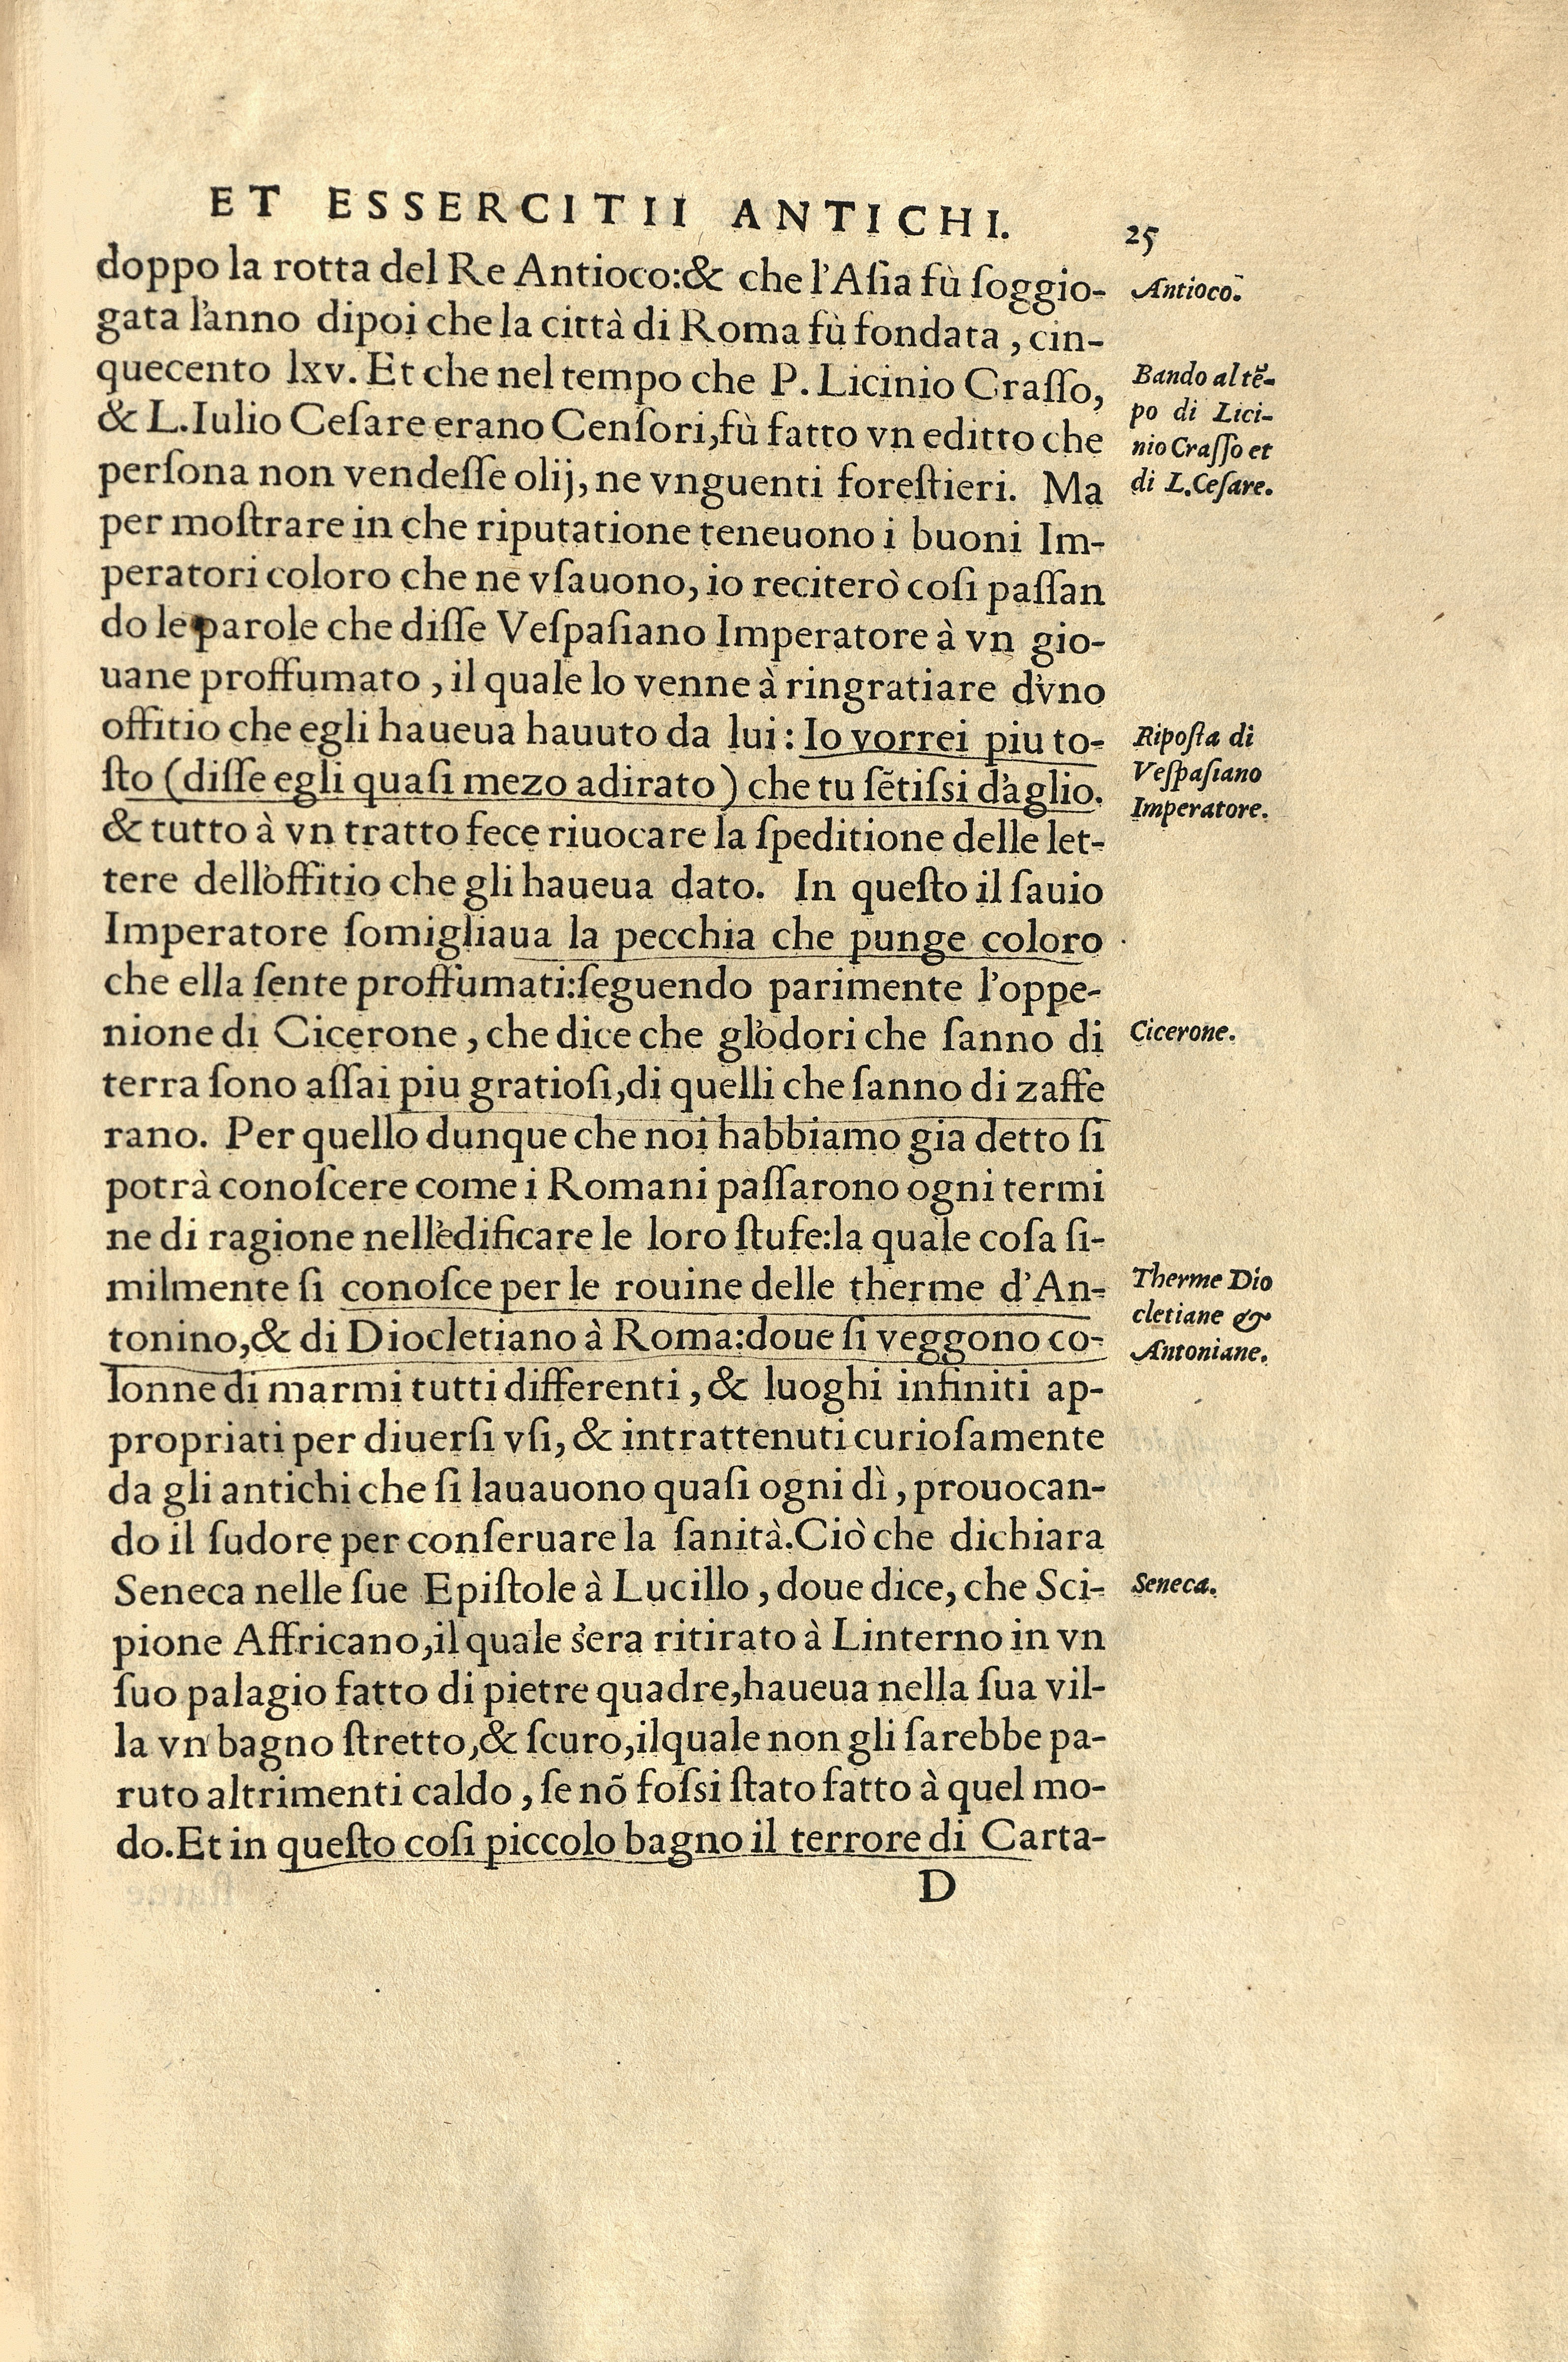 ET ESSERCITII ANTICHI.
25
doppo la rotta del Re Antioco:& che l'Aſia fù ſoggio-
gata l'anno dipoi che la città di Roma fù fondata, cin-
quecento lxv. Et che nel tempo che P. Licinio Craſſo,
& L. Iulio Ceſare erano Cenſori, fù fatto vn editto che
perſona non vendeſſe olij, ne vnguenti foreſtieri. Ma
per moſtrare in che riputatione teneuono i buoni Im-
peratori coloro che ne vſauono, io reciterò coſi paſſan
do le parole che diſſe Veſpaſiano Imperatore à vn gio-
uane proffumato, il quale lo venne à ringratiare d'vno
offitio che egli haueua hauuto da lui: Io vorrei piu to-
ſto (diſſe egli quaſi mezo adirato) che tu ſẽtiſsi d'aglio.
& tutto à vn tratto fece riuocare la ſpeditione delle let-
tere dell'offitio che gli haueua dato. In queſto il ſauio
Imperatore ſomigliaua la pecchia che punge coloro
che ella ſente proffumati:ſeguendo parimente l'oppe-
nione di Cicerone, che dice che gl'odori che ſanno di
terra ſono aſſai piu gratioſi, di quelli che ſanno di zaffe
rano. Per quello dunque che noi habbiamo gia detto ſi
potrà conoſcere come i Romani paſſarono ogni termi
ne di ragione nell'edificare le loro ſtufe:la quale coſa ſi-
milmente ſi conoſce per le rouine delle therme d'An-
tonino,& di Diocletiano à Roma:doue ſi veggono co-
lonne di marmi tutti differenti, & luoghi infiniti ap-
propriati per diuerſi vſi, & intrattenuti curioſamente
da gli antichi che ſi lauauono quaſi ogni dì, prouocan-
do il ſudore per conſeruare la ſanità. Ciò che dichiara
Seneca nelle ſue Epiſtole à Lucillo, doue dice, che Sci-
pione Affricano, il quale s'era ritirato à Linterno in vn
ſuo palagio fatto di pietre quadre, haueua nella ſua vil-
la vn bagno ſtretto,& ſcuro, ilquale non gli ſarebbe pa-
ruto altrimenti caldo, ſe nõ foſsi ſtato fatto à quel mo-
do. Et in queſto coſi piccolo bagno il terrore di Carta-
D
Antioco.
Bando al tẽ-
po di Lici-
nio Craſſo et
di L. Ceſare.
Ripoſta di
Veſpaſiano
Imperatore.
Cicerone.
Therme Dio
cletiane &
Antoniane.
Seneca.